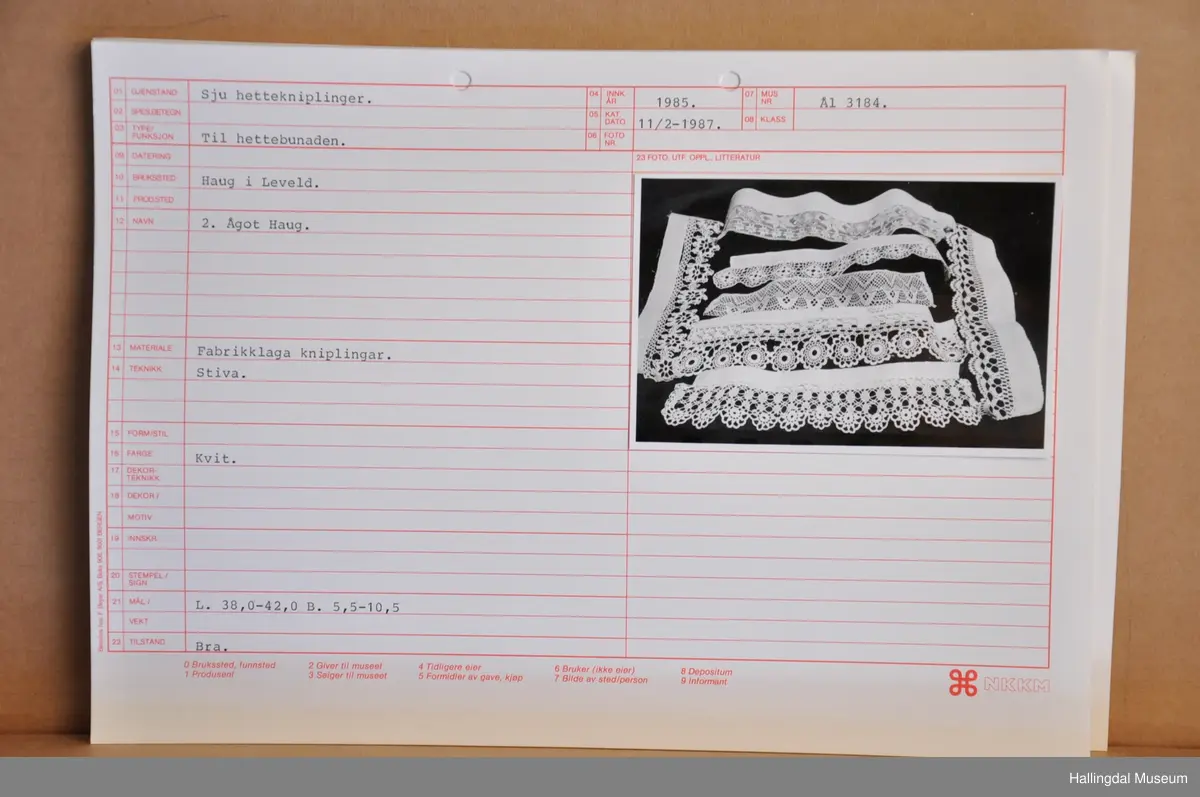 01 GJENSTAND Sju hettekniplinger.
02 SPES.BETEGN
03 TYPE/FUNKSJON Til hettebunaden.
04 INNK. ÅR 1985.
05 KAT. DATO 11/2-1987.
06 FOTO NR.
07 MUS NR Ål 3184.
08 KLASS
09 DATERING
10 BRUKSSTED Haug i Leveld.
11 PROD.STED
12 NAVN 2. Ågot Haug.
13 MATERIALE Fabrikklaga kniplingar.
14 TEKNIKK Stiva.
15 FORM/STIL
16 FARGE Kvit.
17 DEKOR-TEKNIKK
18 DEKOR/
MOTIV
19 INNSKR.
20 STEMPEL/SIGN
21 MÅL/ L. 38,0-42,0 B. 5,5-10,5
VEKT
22 TILSTAND Bra.
23 FOTO, UTF. OPPL., LITTERATUR
0 Brukssted, funnsted 2 Giver til museet 4 Tidligere eier 6 Bruker (ikke eier) 8 Depositum
1 Produsent 3 Selger til museet 5 Formidler av gave, kjøp 7 Bilde av sted/person 9 Informant
NKKM
Hallingdal Museum